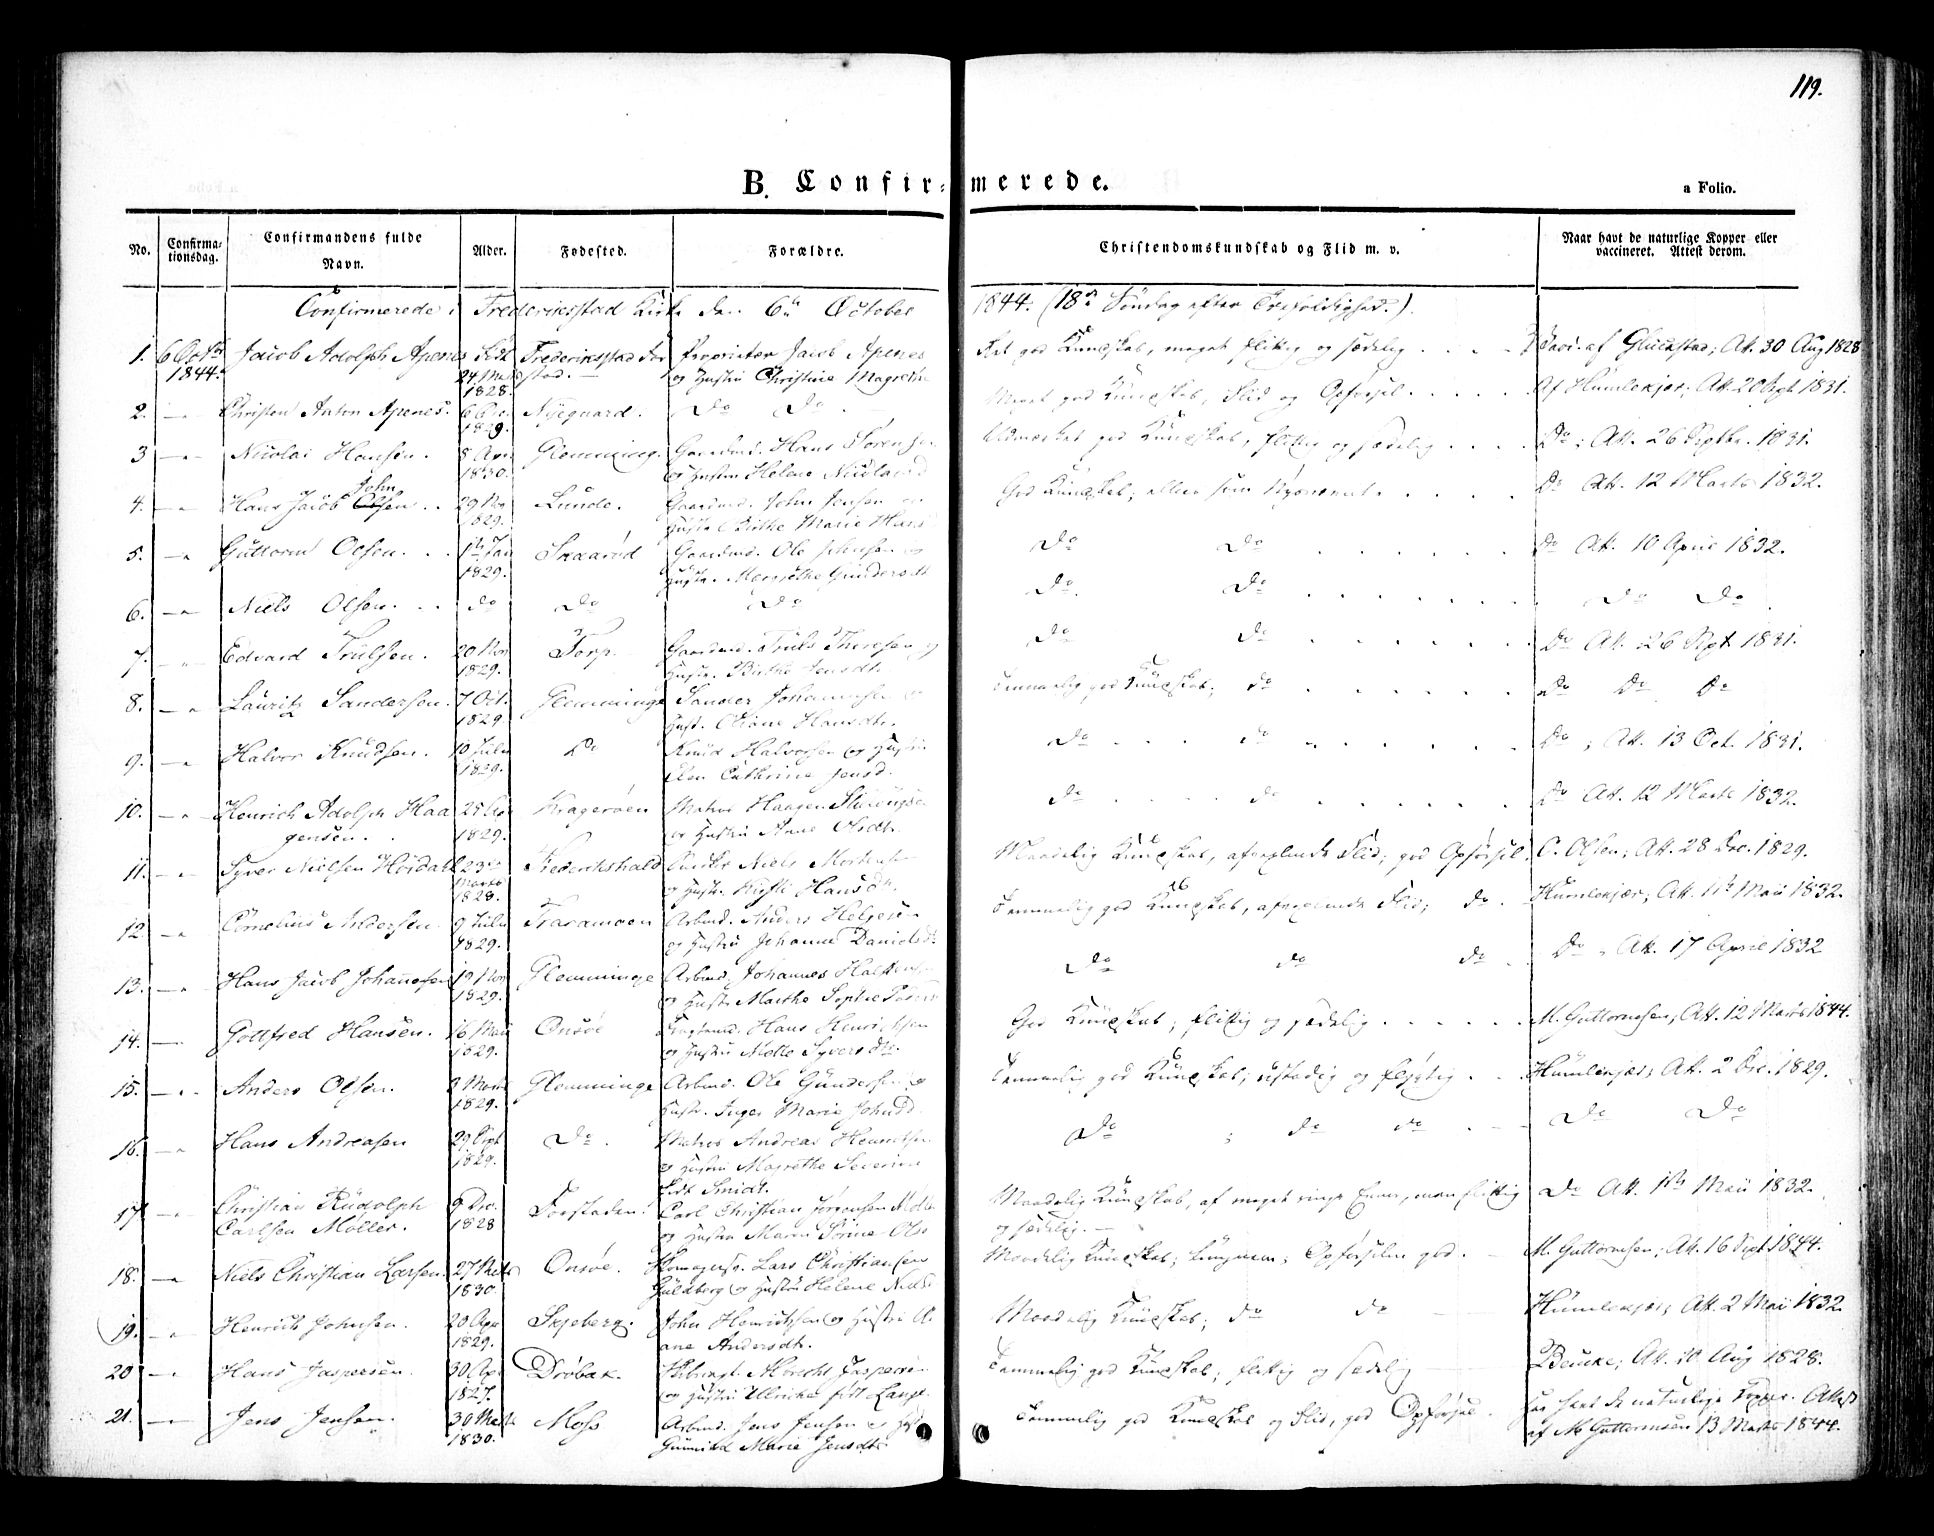 119.
B. Confirmerede.
a Folio.
No. Confirmationsdag. Confirmandens fulde Navn. Alder. Fødested. Forældre. Christendomskundskab og Flid m. v. Naar havt de naturlige Kopper eller vaccineret. Attest derom.
Confirmerede i Frederiksstad Kirke den 6te October 1844. (18de Søndag efter Trefoldighed.)
1. 6 Octbr 1844. Jacob Adolph Apenes 24 1828. Frederiksstad Forstad. Proprietær Jacob Apenes og Hustru Christine Magrethe god Kundskab, meget flittig og sædelig . . . . af Glückstad; Att. 30 Aug 1828
2. —"— Christen Anton Apenes. 6 1829. Nyegaard. Do Do Meget god Kundskab, Flid og Opførsel . . . . . Af Humlekjær; Att. 20 Sept 1831.
3 —"— Nicolai Hansen. 8 Apr 1830. Glemminge. Gaardmd. Hans Sørensen og Hustru Helene Nicolaisd Udmærket god Kundskab, flittig og sædelig . . . . Do; Att. 26 Septbr. 1831.
4. —"— Hans Jacob John Olsen . . 29 Nov 1829. Lunde. Gaardmd. John Jensen og Hustru Birthe Marie Hans God Kundskab; ellers som . . . . . Do Att. 12 Marts 1832.
5. —"— Guttorm Olsen . . . 1ste Jan 1829. Skaarød Gaardmd. Ole Johnsen og Hustr. Magrethe Gundersdt Do Do . . . . . . Do Att. 10 April 1832.
6. —"— Niels Olsen. . . Do Do Do Do. Do . . . . . . . Do Do.
7. —"— Edvard Trulsen. 20 Nov 1829. Torp — Gaardmd. Truls Thoresen og Hustr. Birthe Jensdt. Do Do . . . . . . . Do Att. 26 Sept. 1831.
8. —"— Lauritz Sandersen. 7 Oct. 1829. Glemminge Sander Johannesen og Hust. Oliane Hansdtr. Temmelig god Kundskab; Do . . . . . . Do Do Do
9. —"— Halvor Knudsen. 10 Julii 1829. Do Knud Halvorsen og Hustru Elen Cathrine Jensd. Do . . . Do . . . . . . Do; Att. 13 Oct. 1831.
10. —"— Henrich Adolph Haagensen. . 25 1829. Kragerøen Matros Haagen og Hustru Anne Olsdt. Do . . . . Do . . . . . . Do Att. 12 Marts 1832.
11. —"— Syver Nielsen Høidahl 23de Marts 1828. Frederikshald Niels Mortensen og Hustr. Hansdtr. Maadelig Kundskab, afvexlende Flid; god Opførsel. C. Olsen; Att. 28 Dec. 1829.
12 —"— Cornelius Andersen. 9 Julii 1829. Taramoen Arbmd. Anders Helgesen og Hustru Johanne Danielsdt Temmelig god Kundskab, afvexlende Flid; Do. Humlekjær; Att. 11te Maii 1832.
13. —"— Hans Jacob Johannesen 19 Nov 1829. Glemminge Arbmd. Johannes Halstensen og Hustr. Marthe Sophie Do Do Do. Do. Att. 17 April 1832
14. —"— Gottfred Hansen. 16 Maii 1829. Onsøe Hans Henrichsen og Hustru Mette Syversdtr. God Kundskab; flittig og sædelig . . . . . M. Guttormsen; Att. 12 Marts 1844.
15. —"— Anders Olsen. 3 Marts 1829. Glemminge Arbmd. Ole Gundersen og Hustr. Inger Marie Johnsd. Temmelig god Kundskab; ustadig og flygtig . . . Humlekjær; Att. 2 Dec. 1829.
16. —"— Hans Andreasen 29 Sept 1829. Do. Matros Andreas Henrichsen og Hustru Magrethe Severine født Smidt. Do ; Do Do . — Do Do
17 —"— Christian Rudolph Carlsen Møller. 9 Dec. 1828 Forstaden. Carl Christian Jørgensen Møller og Hustru Maren Sørine Ols Maadelig Kundskab, af meget ringe Evner, men flittig og sædelig. — Do Att. 1ste Maii 1832.
18. —"— Niels Christian Larsen. 27 Marts 1830. Onsøe. Lars Christiansen Guldberg og Hustru Helene Nielsd Maadelig Kundskab; Opførselen god. — M. Guttormsen; Att. 16 Sept 1844.
19. —"— Henrich Johnsen. 20 Apr 1829. Skjeberg. John Henrichsen og Hustru Oliane Andersdtr. Maadelig Kundskab; Do Do — Humlekjær; Att. 2 Maii 1832.
20 —"— Hans Jaspersen. 30 Apr 1827. Drøbak. Albrecht Jaspersen og Hustru Ullricke født Lange. Temmelig god Kundskab; flittig og sædelig Beucke; Att. 10 Aug 1828.
21. —"— Jens Jensen. 30 Marts 1830. Moss Arbmd. Jens Jensen og Hust Gunnild Marie Jensdtr Temmelig god Kundskab og Flid, god Opførsel. har havt de naturlige Kopper. Attest af M Guttormsen 13 Marts 1844.